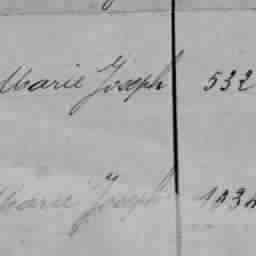 Marie Joseph 532
Marie Joseph 1034